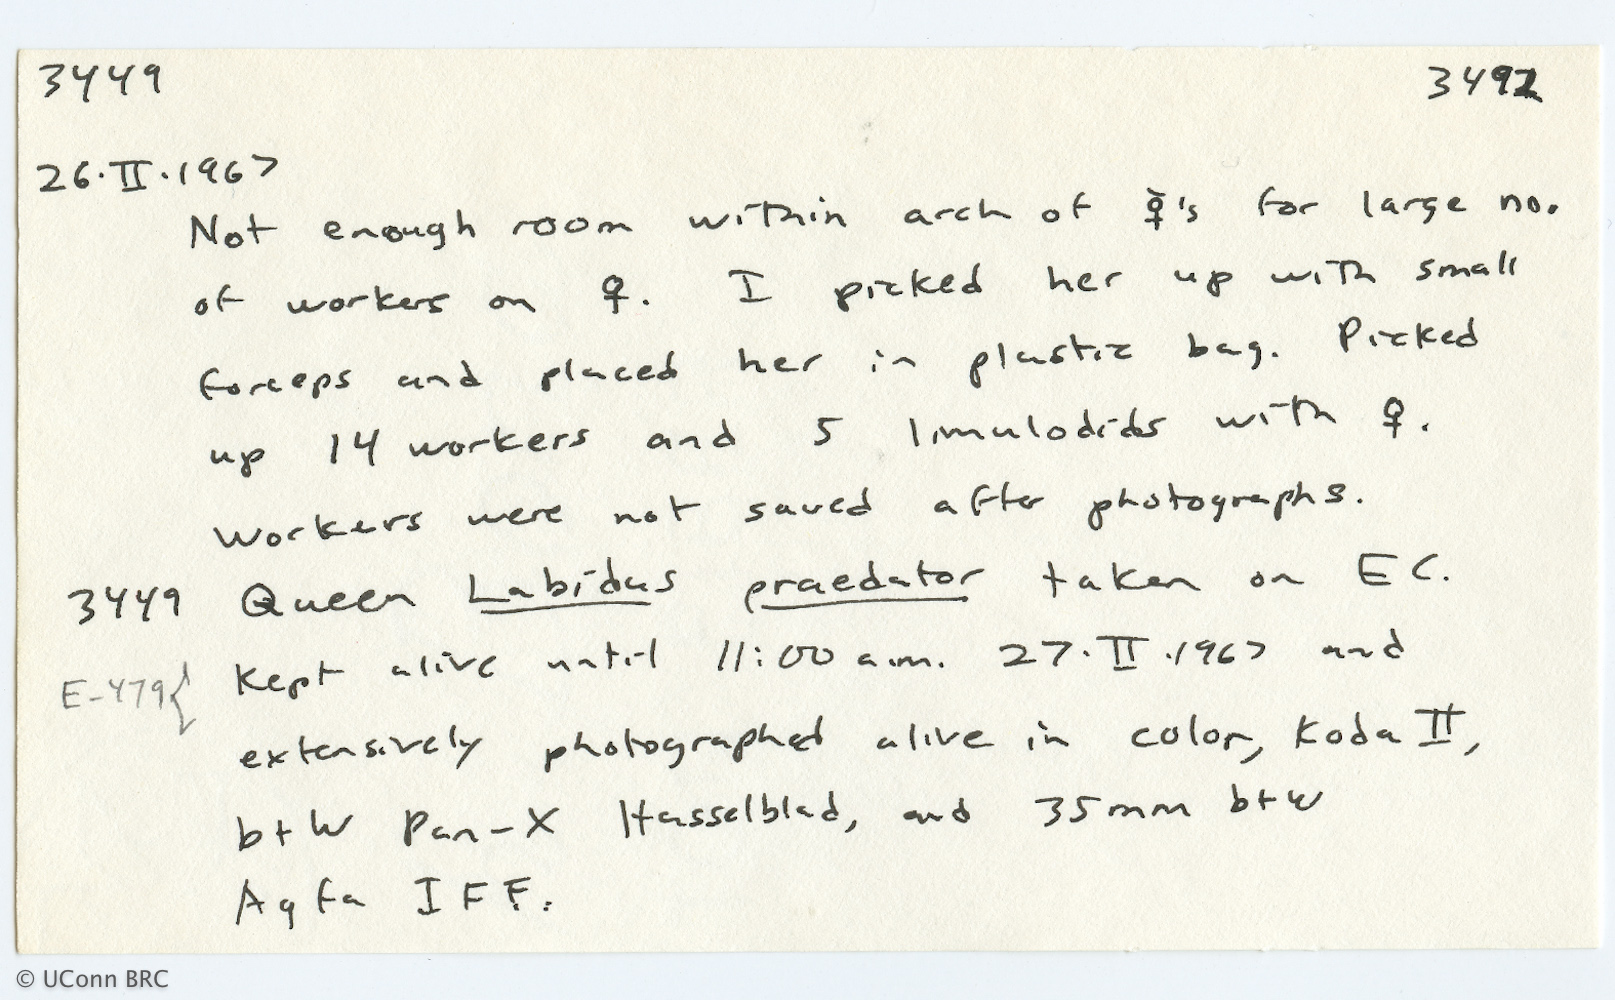 3449 3492
26·II·1967
Not enough room within arch of ☿'s for large no.
of workers on ♀. I picked her up with small
forceps and placed her in plastic bag. Picked
up 14 workers and 5 limulodids with ♀.
Workers were not saved after photographs.
3449 Queen Labidus praedator taken on EC.
E-479{ Kept alive until 11:00 a.m. 27·II·1967 and
extensively photographed alive in color, Koda II,
b+W Pan-X Hasselblad, and 35mm b+w
Agfa IFF.
© UConn BRC